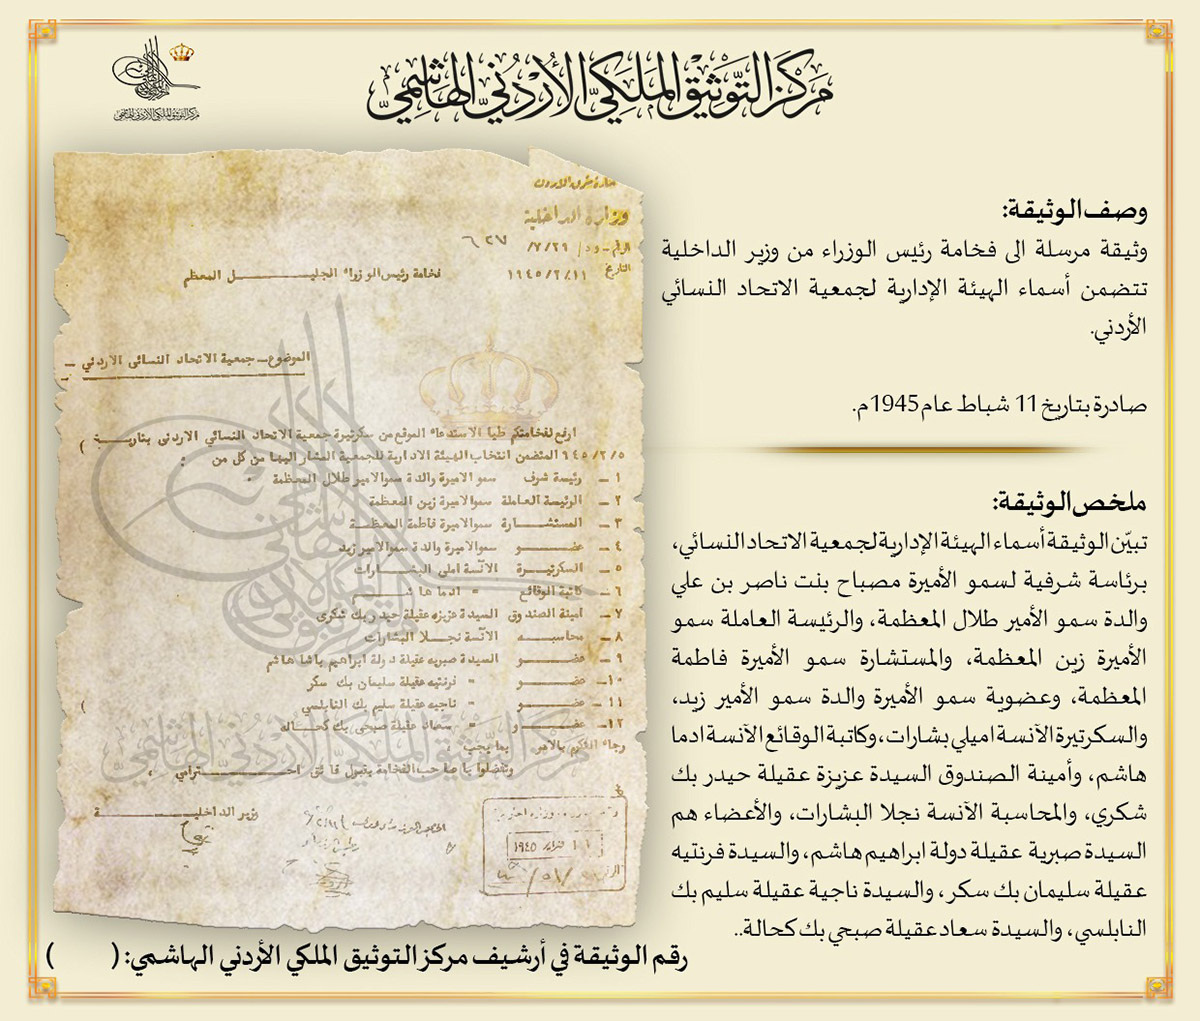 مركز التوثيق الملكي الأردني الهاشمي
مركز التوثيق الملكي الأردني الهاشمي
وصف الوثيقة:
وثيقة مرسلة الى فخامة رئيس الوزراء من وزير الداخلية
تتضمن أسماء الهيئة الإدارية لجمعية الاتحاد النسائي
الأردني.
صادرة بتاريخ 11 شباط عام 1945م.
ملخص الوثيقة:
تبيّن الوثيقة أسماء الهيئة الإدارية لجمعية الاتحاد النسائي،
برئاسة شرفية لسمو الأميرة مصباح بنت ناصر بن علي
والدة سمو الأمير طلال المعظمة، والرئيسة العاملة سمو
الأميرة زين المعظمة، والمستشارة سمو الأميرة فاطمة
المعظمة، وعضوية سمو الأميرة والدة سمو الأمير زيد،
والسكرتيرة الآنسة اميلي بشارات، وكاتبة الوقائع الآنسة ادما
هاشم، وأمينة الصندوق السيدة عزيزة عقيلة حيدر بك
شكري، والمحاسبة الآنسة نجلا البشارات، والأعضاء هم
السيدة صبرية عقيلة دولة ابراهيم هاشم، والسيدة فرنتيه
عقيلة سليمان بك سكر، والسيدة ناجية عقيلة سليم بك
النابلسي، والسيدة سعاد عقيلة صبحي بك كحالة..
شرق الاردن
وزارة الداخلية
الرقم - ود/ ٧/٢٩/ ٦٢٧
التاريخ ١٩٤٥/٢/١١
فخامة رئيس الوزراء الجليل المعظم
الموضوع - جمعية الاتحاد النسائي الاردني -
ارفع لفخامتكم طيا الاستدعاء الموقع من سكرتيرة جمعية الاتحاد النسائي الاردني بتاريخ
٩٤٥/٢/٥ المتضمن انتخاب الهيئة الادارية للجمعية المشار اليها من كل من :
١ - رئيسة شرف سمو الاميرة والدة سمو الامير طلال المعظمة
٢ - الرئيسة العاملة سمو الاميرة زين المعظمة
٣ - المستشارة سمو الاميرة فاطمة المعظمة
٤ - عضو سمو الاميرة والدة سمو الامير زيد
٥ - السكرتيرة الآنسة املي البشارات
٦ - كاتبة الوقائع " ادما هاشم
٧ - امينة الصندوق السيدة عزيزه عقيلة حيدر بك شكري
٨ - محاسبه الآنسة نجلا البشارات
٩ - عضو السيدة صبريه عقيلة دولة ابراهيم باشا هاشم
١٠ - عضو " فرنتيه عقيلة سليمان بك سكر
١١ - عضو " ناجيه عقيلة سليم بك النابلسي
١٢ - عضو " سعاد عقيلة صبحي بك كحاله
رجاء التكرم بالامر بما يجب .
وتفضلوا يا صاحب الفخامة بقبول فائق احترامي ،
وزير الداخلية
١١ فبراير ١٩٤٥
مركز التوثيق الملكي الأردني الهاشمي
رقم الوثيقة في أرشيف مركز التوثيق الملكي الأردني الهاشمي: ( )